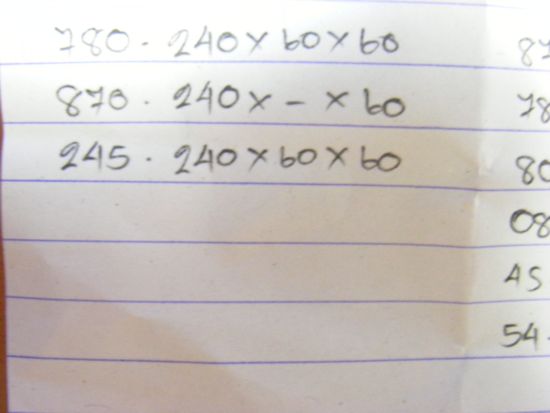 780. 240x60x60
870. 240x - x60
245. 240x60x60
87
78
80
08
45
54.